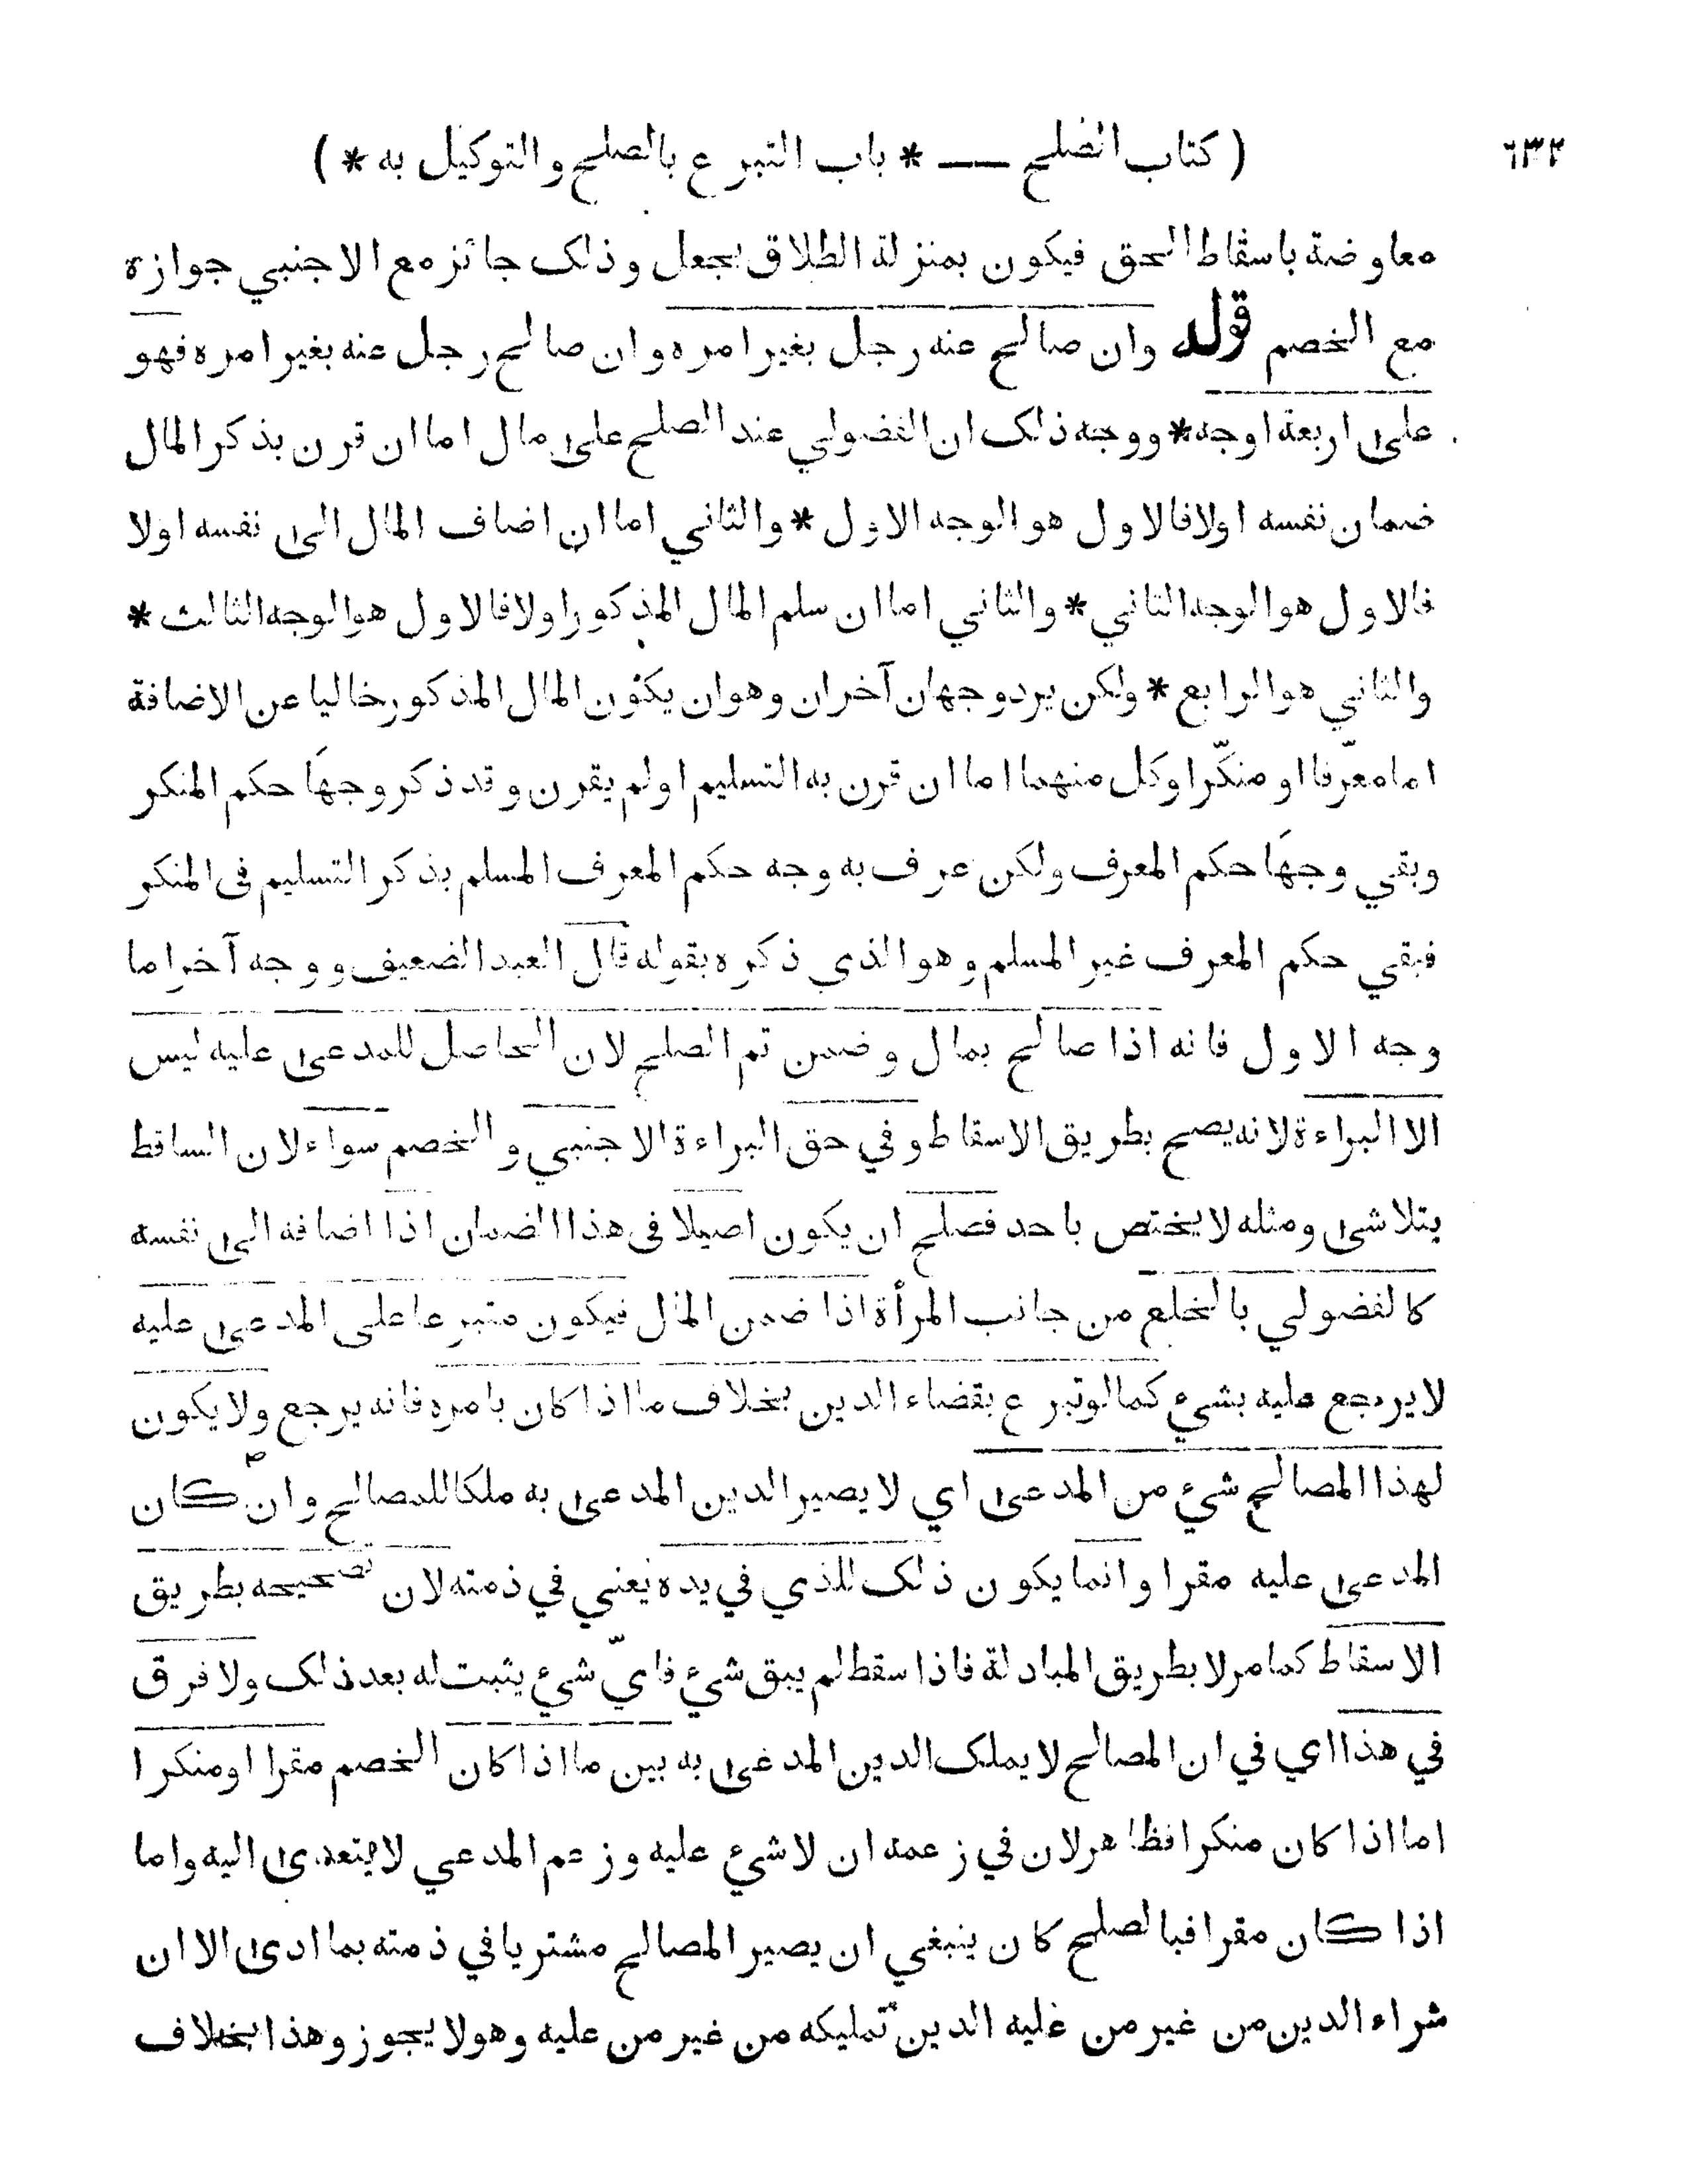 ٦٣٢ ( كتاب الصلح — * باب التبرع بالصلح والتوكيل به * )
معاوضة باسقاط الحق فيكون بمنزلة الطلاق بجعل وذلك جائز مع الاجنبي جوازه
مع الخصم قوله وان صالح عنه رجل بغير امره وان صالح رجل عنه بغير امره فهو
على اربعة اوجه * ووجه ذلك ان الفضولي عند الصلح على مال اما ان قرن بذكر المال
ضمان نفسه اولا فالاول هو الوجه الاول * والثاني اما ان اضاف المال الى نفسه اولا
فالاول هو الوجه الثاني * والثاني اما ان سلم المال المذكور اولا فالاول هو الوجه الثالث *
والثاني هو الرابع * ولكن يرد وجهان آخران وهو ان يكون المال المذكور خاليا عن الاضافة
اما معرّفا او منكّرا وكل منهما اما ان قرن به التسليم او لم يقرن وقد ذكر وجهَا حكم المنكر
وبقي وجهَا حكم المعرف ولكن عرف به وجه حكم المعرف المسلم بذكر التسليم فى المنكر
فبقي حكم المعرف غير المسلم وهو الذي ذكره بقوله قال العبد الضعيف ووجه آخر اما
وجه الاول فانه اذا صالح بمال وضمن تم الصلح لان الحاصل للمدعى عليه ليس
الا البراءة لانه يصح بطريق الاسقاط وفي حق البراءة الاجنبي والخصم سواء لان الساقط
يتلاشى ومثله لا يختص باحد فصلح ان يكون اصيلا فى هذا الضمان اذا اضافه الى نفسه
كالفضولي بالخلع من جانب المرأة اذا ضمن المال فيكون متبرعا على المدعى عليه
لا يرجع عليه بشيء كما لو تبرع بقضاء الدين بخلاف ما اذا كان بامره فانه يرجع ولا يكون
لهذا المصالح شيء من المدعى اي لا يصير الدين المدعى به ملكا للمصالح وان كان
المدعى عليه مقرا وانما يكون ذلك للذي في يده يعني في ذمته لان تصحيحه بطريق
الاسقاط كما مر لا بطريق المبادلة فاذا سقط لم يبق شيء فايّ شيء يثبت له بعد ذلك ولا فرق
في هذا اي في ان المصالح لا يملك الدين المدعى به بين ما اذا كان الخصم مقرا او منكرا
اما اذا كان منكرا فظاهر لان في زعمه ان لا شيء عليه وزعم المدعي لا يتعدى اليه واما
اذا كان مقرا فبالصلح كان ينبغي ان يصير المصالح مشتريا في ذمته بما ادى الا ان
شراء الدين من غير من عليه الدين تمليكه من غير من عليه وهو لا يجوز وهذا بخلاف